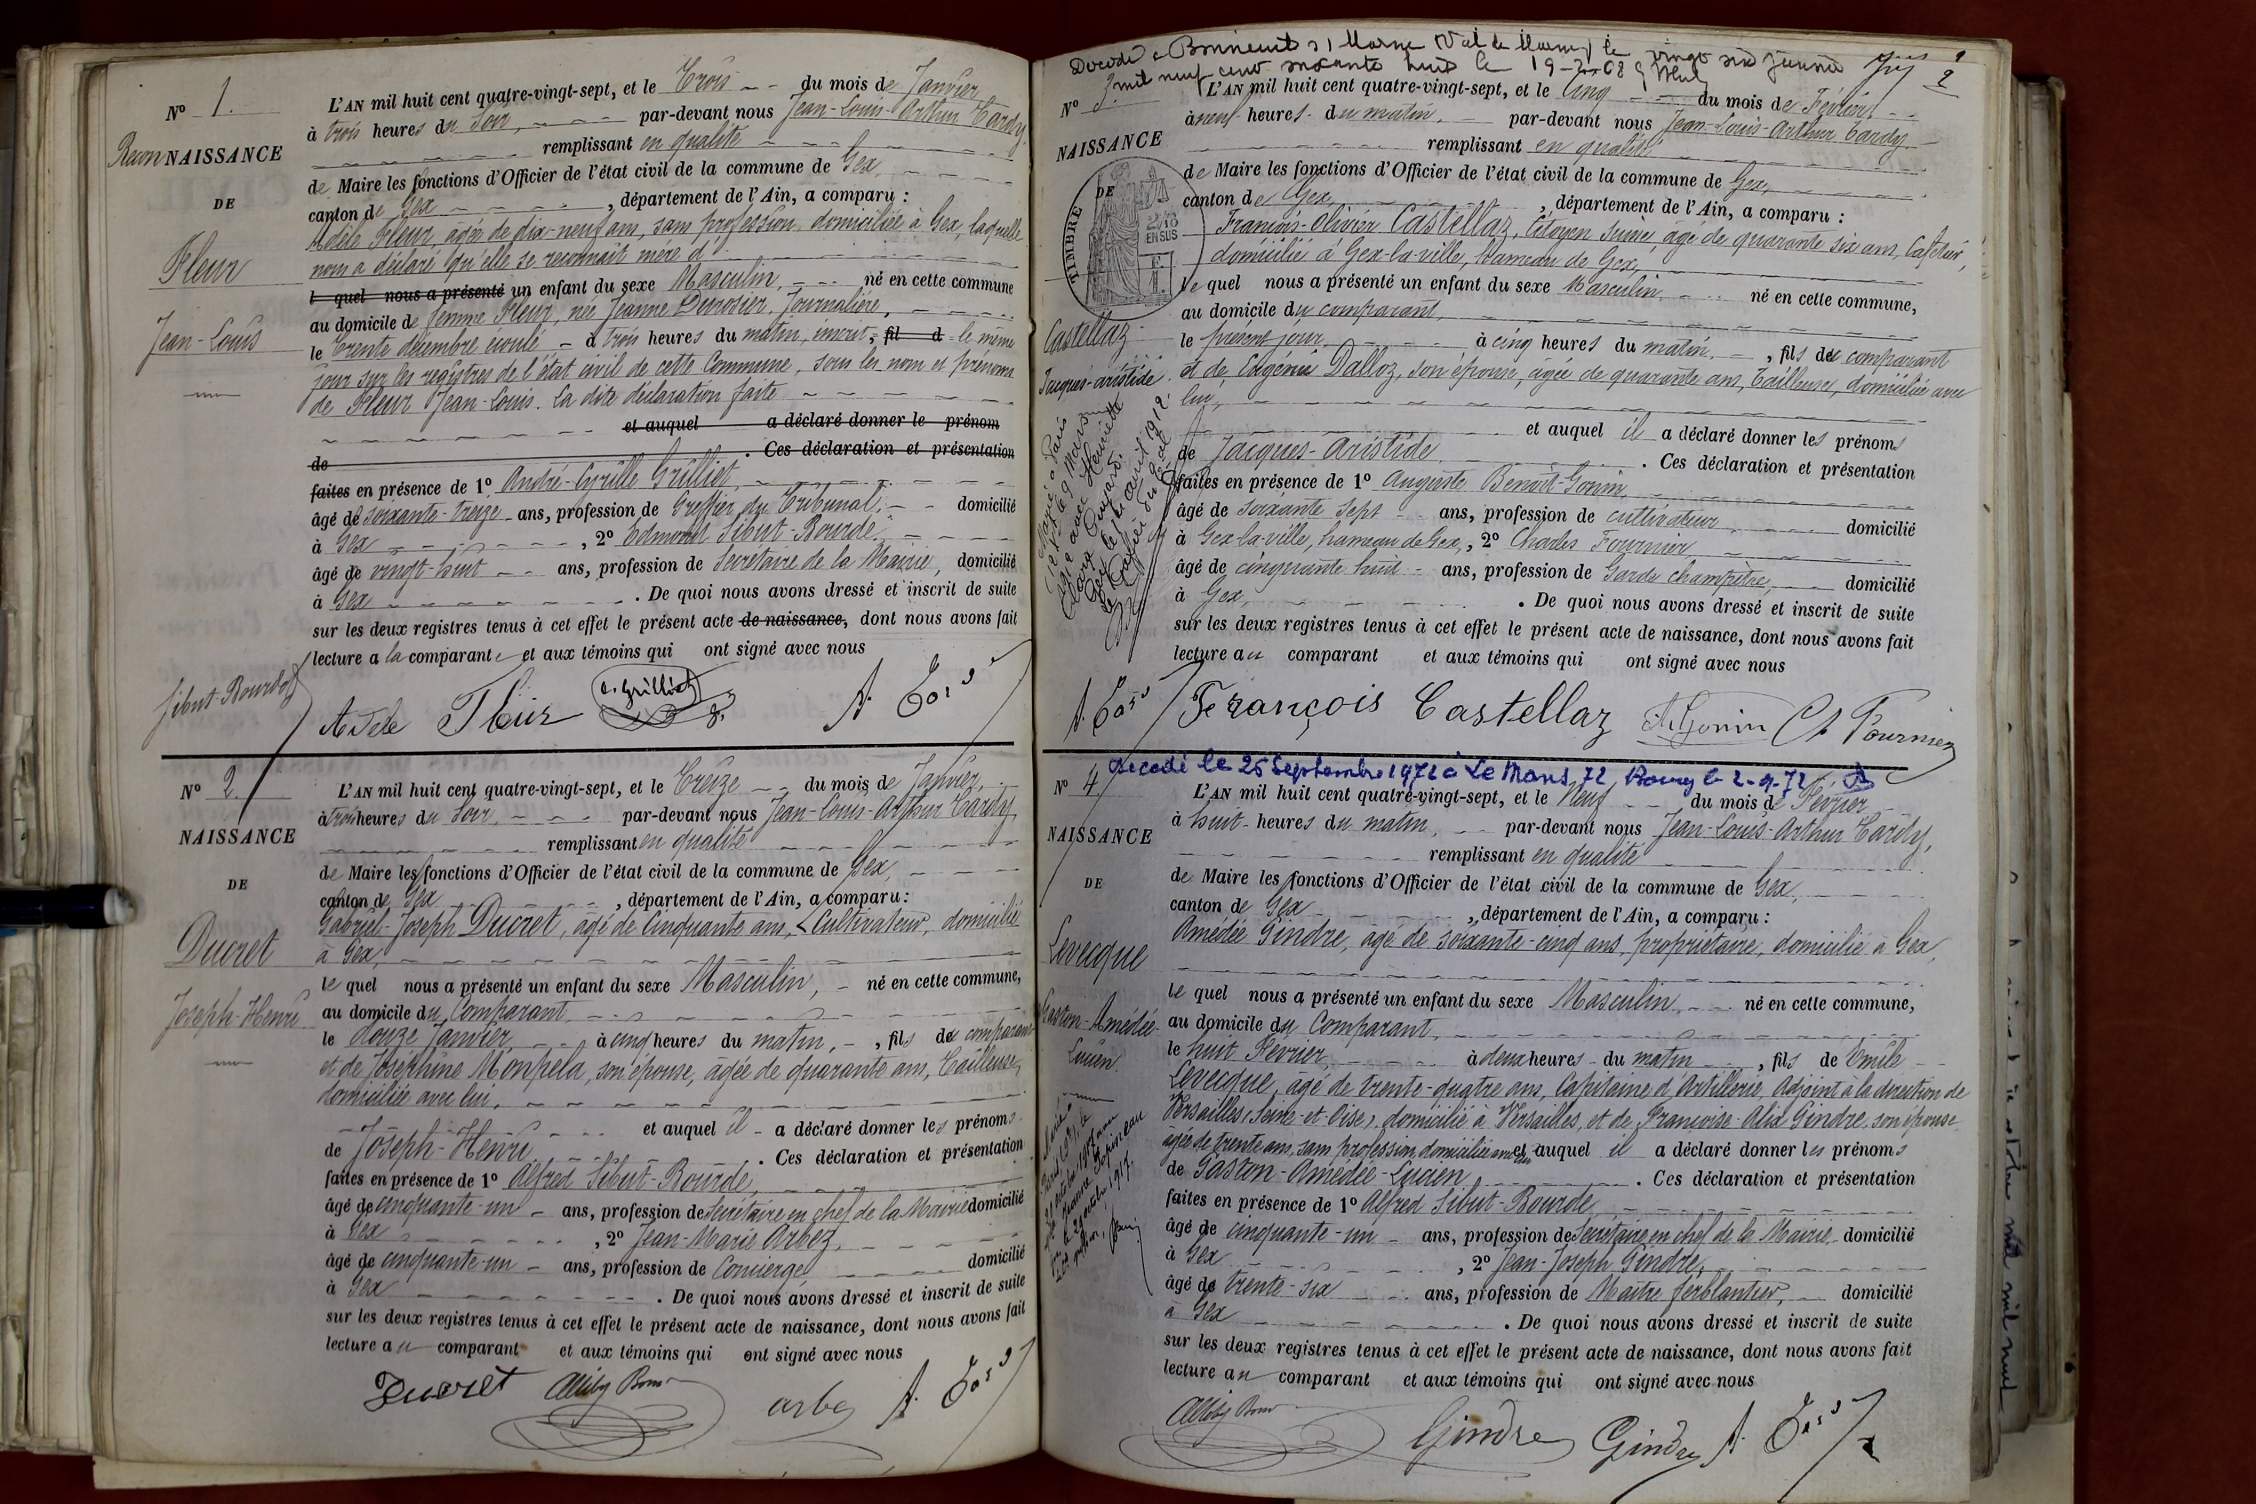 Nº 1.
Recon NAISSANCE
DE
Fleur
Jean-Louis
L'AN mil huit cent quatre-vingt-sept, et le Trois du mois de Janvier
à trois heures du Soir, par-devant nous Jean-Louis-Arthur Tardy
remplissant en qualité
de Maire les fonctions d'Officier de l'état civil de la commune de Gex,
canton de Gex, département de l'Ain, a comparu :
Adèle Fleur, agée de dix-neuf ans, sans profession, domiciliée à Gex, laquelle
nous a déclaré qu'elle se reconnait mère d'
l quel nous a présenté un enfant du sexe Masculin, né en cette commune
au domicile de femme Fleur, née Jeanne Durosier, Journalière,
le trente décembre écoulé à trois heures du matin, inscrit, fil d le même
jour sur les registres de l'état civil de cette Commune, sous les nom et prénoms
de Fleur Jean-Louis. La dite déclaration faite
et auquel a déclaré donner le prénom
de . Ces déclaration et présentation
faites en présence de 1º André-Cyrille Grilliet,
âgé de soixante-treize ans, profession de Greffier du Tribunal, domicilié
à Gex, 2º Edmond Sibut-Bourde,
âgé de vingt-huit ans, profession de Secrétaire de la Mairie, domicilié
à Gex . De quoi nous avons dressé et inscrit de suite
sur les deux registres tenus à cet effet le présent acte de naissance, dont nous avons fait
lecture a la comparante et aux témoins qui ont signé avec nous
Sibut-Bourde
Adele Fleur
Nº 2.
NAISSANCE
DE
Ducret
Joseph-Henri
L'AN mil huit cent quatre-vingt-sept, et le Treize du mois de Janvier,
à trois heures du Soir, par-devant nous Jean-Louis-Arthur Tardy
remplissant en qualité
de Maire les fonctions d'Officier de l'état civil de la commune de Gex,
canton de Gex, département de l'Ain, a comparu :
Gabriel-Joseph Ducret, âgé de Cinquante ans, Cultivateur, domicilié
à Gex,
le quel nous a présenté un enfant du sexe Masculin, né en cette commune,
au domicile du Comparant
le douze Janvier à cinq heures du matin, fils du comparant
et de Joséphine Monpela, son épouse, âgée de quarante ans, Tailleuse,
domiciliée avec lui,
et auquel il a déclaré donner les prénoms
de Joseph-Henri . Ces déclaration et présentation
faites en présence de 1º Alfred Sibut-Bourde,
âgé de cinquante-un ans, profession de Secrétaire en chef de la Mairie domicilié
à Gex, 2º Jean-Marie Arbez,
âgé de cinquante-un ans, profession de Concierge domicilié
à Gex . De quoi nous avons dressé et inscrit de suite
sur les deux registres tenus à cet effet le présent acte de naissance, dont nous avons fait
lecture au comparant et aux témoins qui ont signé avec nous
Ducret
2
Nº 3.
NAISSANCE
DE
TIMBRE
EN SUS
Castellaz
Jacques-Aristide
L'AN mil huit cent quatre-vingt-sept, et le Cinq du mois de Février
à neuf heures du matin, par-devant nous Jean-Louis-Arthur Tardy
remplissant en qualité
de Maire les fonctions d'Officier de l'état civil de la commune de Gex,
canton de Gex, département de l'Ain, a comparu :
François-Olivier Castellaz, Citoyen Suisse, âgé de quarante six ans, Cafetier,
domicilié à Gex-la-ville, hameau de Gex,
le quel nous a présenté un enfant du sexe Masculin, né en cette commune,
au domicile du comparant,
le présent jour, à cinq heures du matin, fils du comparant
et de Eugénie Dalloz, son épouse, âgée de quarante ans, Tailleuse, domiciliée avec
lui,
et auquel il a déclaré donner les prénoms
de Jacques-Aristide . Ces déclaration et présentation
faites en présence de 1º Auguste Benoit-Gonin,
âgé de soixante sept ans, profession de cultivateur, domicilié
à Gex-la-ville, hameau de Gex, 2º Charles Fournier,
âgé de cinquante huit ans, profession de Garde champêtre, domicilié
à Gex, . De quoi nous avons dressé et inscrit de suite
sur les deux registres tenus à cet effet le présent acte de naissance, dont nous avons fait
lecture au comparant et aux témoins qui ont signé avec nous
François Castellaz A. Gonin Ch Fournier
décédé le 25 Septembre 1972 à Le Mans 72,
Nº 4
NAISSANCE
DE
Levecque
Gaston-Amédée-
Lucien
L'AN mil huit cent quatre-vingt-sept, et le Neuf du mois de Février
à huit heures du matin, par-devant nous Jean-Louis-Arthur Tardy,
remplissant en qualité
de Maire les fonctions d'Officier de l'état civil de la commune de Gex,
canton de Gex, département de l'Ain, a comparu :
Amédée Gindre, âgé de soixante-cinq ans, propriétaire, domicilié à Gex,
le quel nous a présenté un enfant du sexe Masculin, né en cette commune,
au domicile du Comparant,
le huit Février, à deux heures du matin, fils de Emile
Levecque, âgé de trente-quatre ans, Capitaine d'Artillerie, Adjoint à la direction de
Versailles, (Seine-et-Oise), domicilié à Versailles, et de Françoise-Alix Gindre, son épouse
âgée de trente ans, sans profession, domiciliée avec lui et auquel il a déclaré donner les prénoms
de Gaston-Amédée-Lucien . Ces déclaration et présentation
faites en présence de 1º Alfred Sibut-Bourde,
âgé de cinquante-un ans, profession de Secrétaire en chef de la Mairie domicilié
à Gex, 2º Jean-Joseph Gindre,
âgé de trente-six ans, profession de Maître ferblantier, domicilié
à Gex . De quoi nous avons dressé et inscrit de suite
sur les deux registres tenus à cet effet le présent acte de naissance, dont nous avons fait
lecture au comparant et aux témoins qui ont signé avec nous
Gindre Gindre